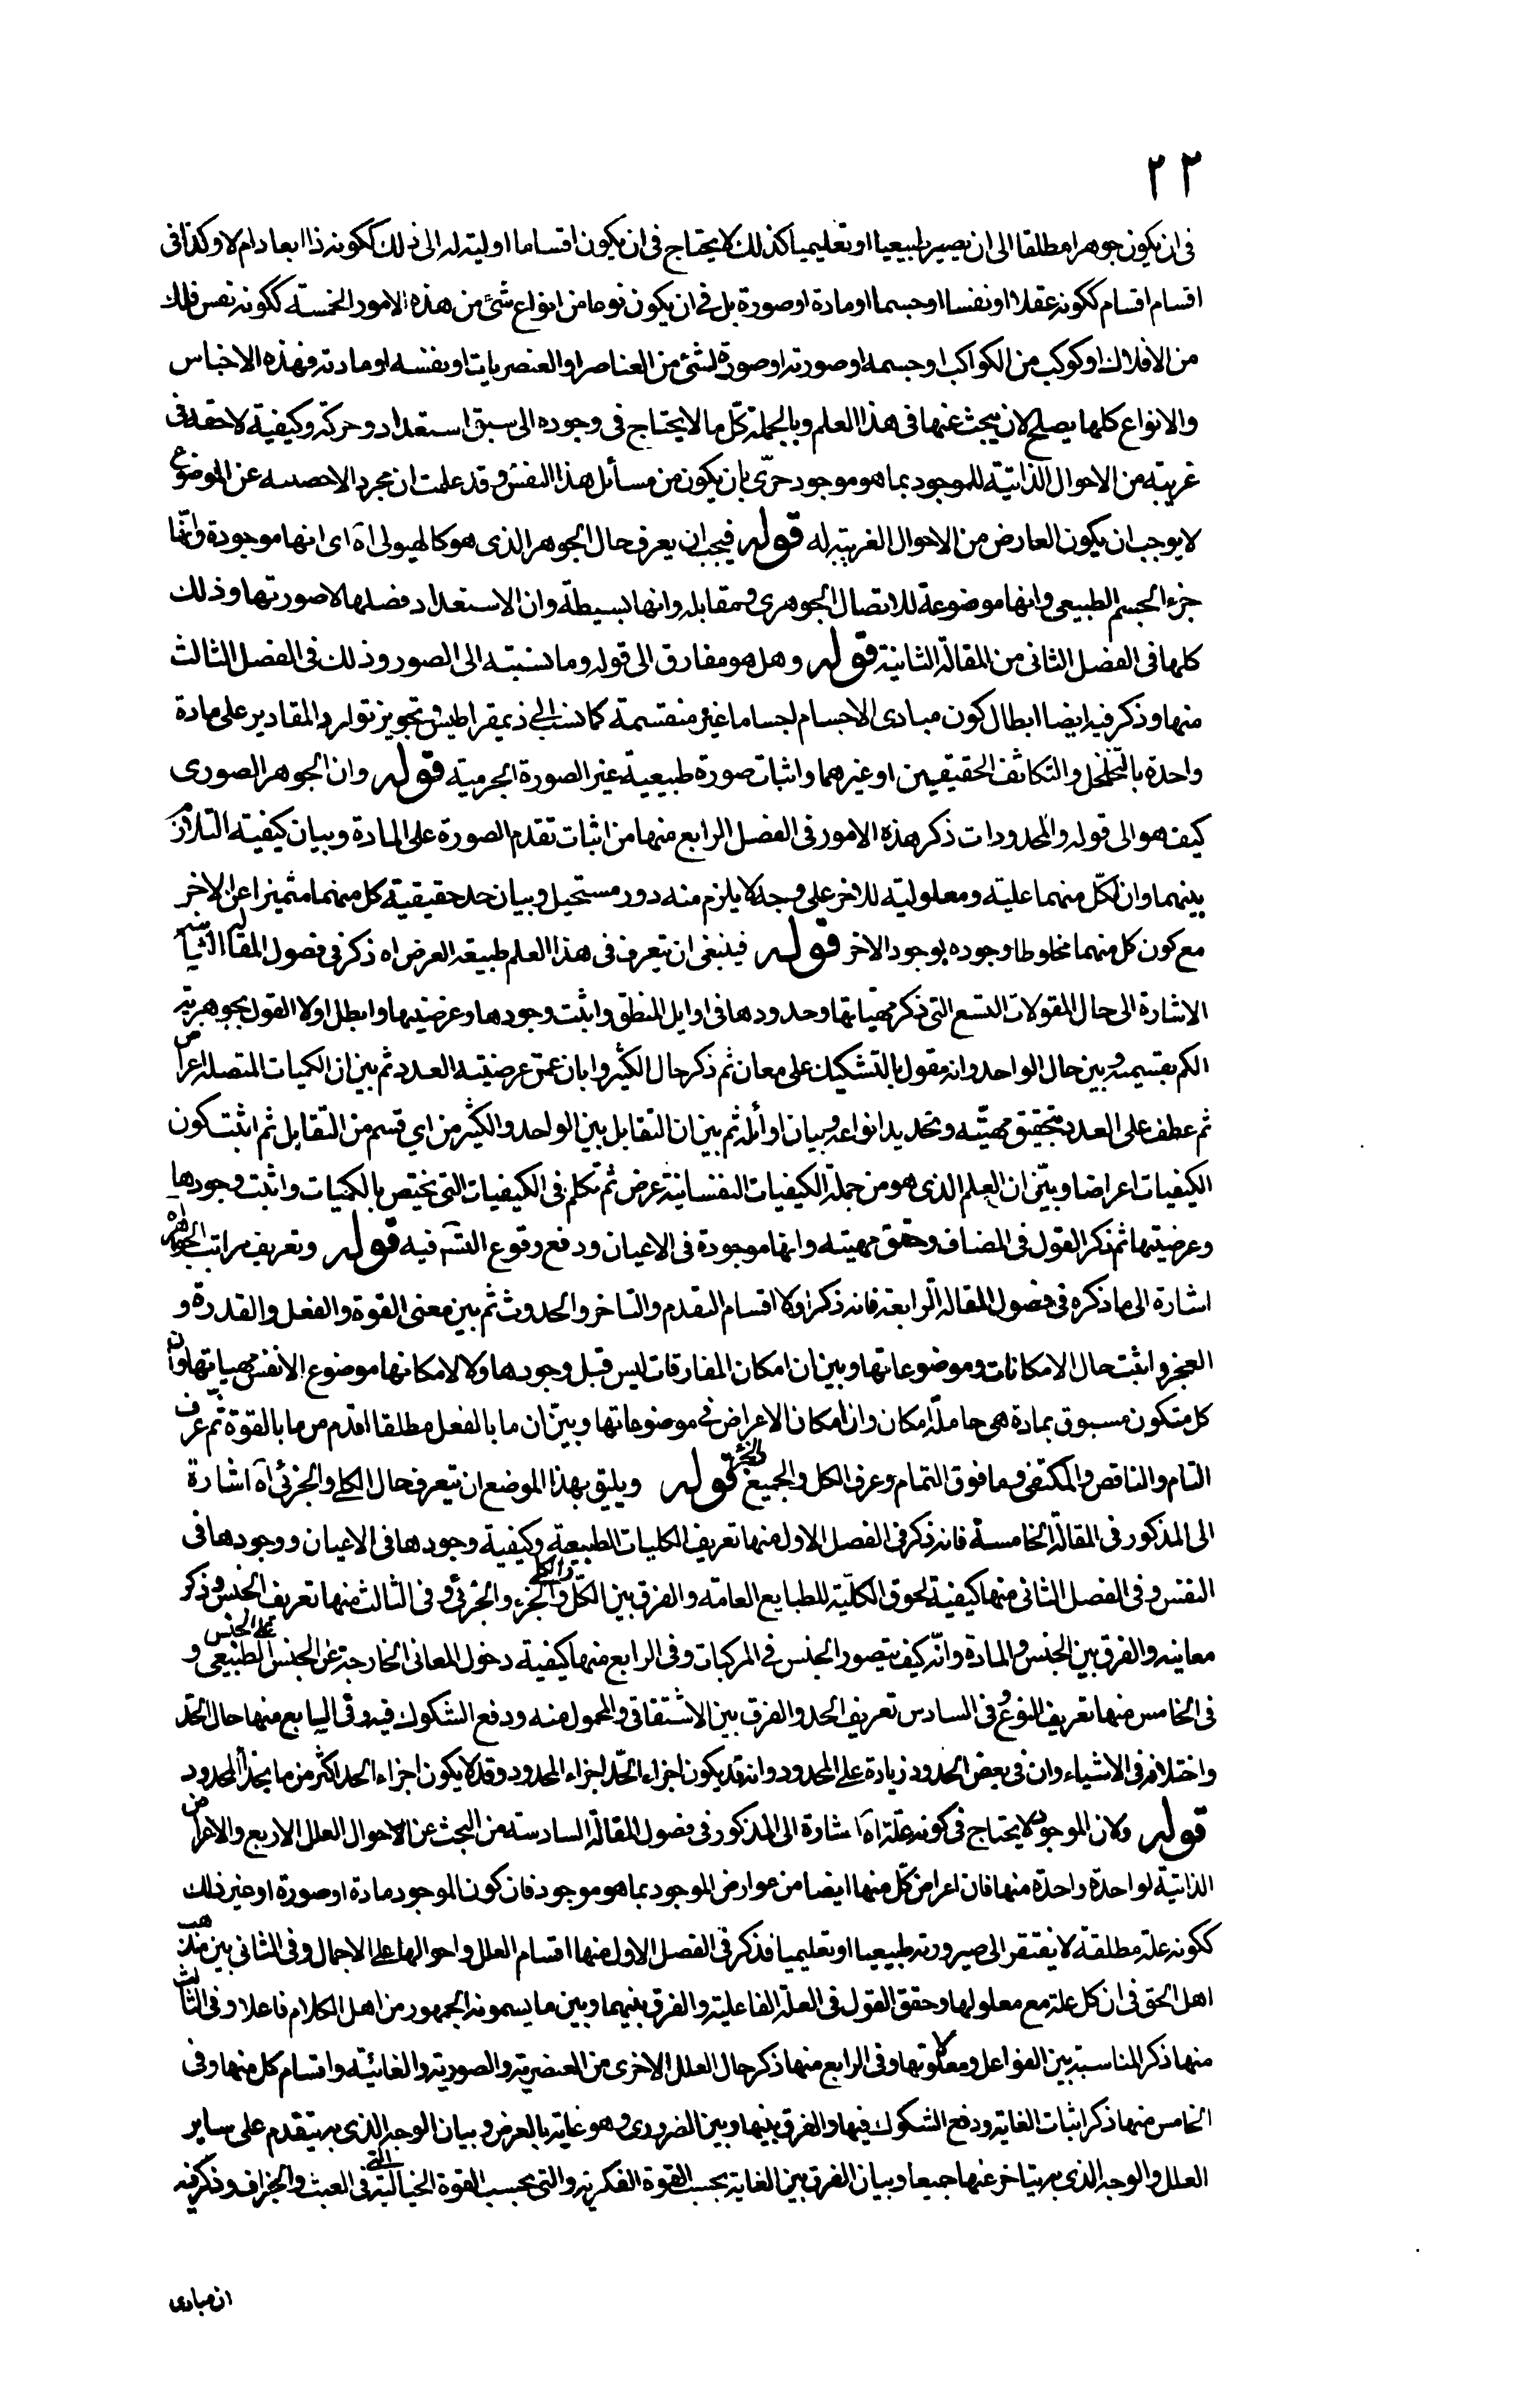 ٢٣
فى ان يكون جوهرا مطلقا الى ان يصير طبيعيا او تعليميا كذلك لا يحتاج فى ان يكون اقساما اولية له الى ذلك ككونه ذا ابعاد ام لا وكذا فى
اقسام اقسام ككونه عقلا او نفسا او جسما او مادة او صورة بل فى ان يكون نوعا من انواع شئ من هذه الامور الخمسة ككونه نفس فلك
من الافلاك او كوكب من الكواكب او جسمه او صورته او صورة لشئ من العناصر او العنصريات او نفسه او مادته فهذه الاجناس
والانواع كلها يصلح لان يبحث عنها فى هذا العلم وبالجملة كل ما لا يحتاج فى وجوده الى سبق استعداد وحركة وكيفية لاحقة فى
غريبة من الاحوال الذاتية للموجود بما هو موجود حرىّ بان يكون من مسائل هذا الفن وقد علمت ان مجرد الاخصية عن الموضوع
لا يوجب ان يكون العارض من الاحوال الغريبة له قوله فيجب ان يعرف حال الجوهر الذى هو كالهيولى اه اى انها موجودة وانّها
جزء الجسم الطبيعى وانها موضوعة للاتصال الجوهرى ومقابله وانها بسيطة وان الاستعداد فصلها لا صورتها وذلك
كلها فى الفصل الثانى من المقالة الثانية قوله وهل هو مفارق الى قوله وما نسبته الى الصور وذلك فى الفصل الثالث
منها وذكر فيه ايضا ابطال كون مبادى الاجسام اجساما غير منقسمة كما نسب الى ذيمقراطيس وتجويز توارد المقادير على مادة
واحدة بالتخلخل والتكاثف الحقيقيين او غيرهما واثبات صورة طبيعية غير الصورة الجرمية قوله وان الجوهر الصورى
كيف هو الى قوله والمحدودات ذكر هذه الامور فى الفصل الرابع منها من اثبات تقدم الصورة على المادة وبيان كيفية التلازم
بينهما وان لكل منهما علية ومعلولية للاخر على وجه لا يلزم منه دور مستحيل وبيان حد حقيقية كل منهما متميزا عن الاخر
مع كون كل منهما مخلوطا وجوده بوجود الاخر قوله فينبغى ان تعرف فى هذا العلم طبيعة العرض اه ذكر فى فصول المقالة الثالثة
الاشارة الى حال المقولات التسع التى ذكر مهياتها وحدودها فى اوايل المنطق واثبت وجودها وعرضيتها وابطل اولا القول بجوهرية
الكم بقسيميه وبين حال الواحد وانه مقول بالتشكيك على معان ثم ذكر حال الكثير وابان عن عرضيته العدد ثم بين ان الكميات المتصلة اعراض
ثم عطف على العدد بتحقيق مهيّته وتحديد انواعه وبيان اوائله ثم بين ان التقابل بين الواحد والكثير من اي قسم من التقابل ثم اثبت كون
الكيفيات اعراضا وبيّن ان العلم الذى هو من جملة الكيفيات النفسانية عرض ثم تكلم فى الكيفيات التى تختص بالكميات واثبت وجودها
وعرضيتها ثم ذكر القول فى المضاف وحقق مهيته وانها موجودة فى الاعيان ودفع وقوع التسّه فيه قوله وتعريف مراتب الجواهر اه
اشارة الى ما ذكره فى فصول المقالة الرابعة فانه ذكر اولا اقسام التقدم والتاخر والحدوث ثم بين معنى القوة والفعل والقدرة و
العجز واثبت حال الامكانات وموضوعاتها وبين ان امكان المفارقات ليس قبل وجودها ولا لامكانها موضوع الانفس مهياتها وان
كل متكون مسبوق بمادة هى حاملة امكان وان امكان الاعراض فى موضوعاتها وبيّن ان ما بالفعل مطلقا اقدم من ما بالقوة ثم عرف
التام والناقص والمكتفى وما فوق التمام وعرف الكل والجميع والجزء قوله ويليق بهذا الموضع ان تتعرف حال الكلى والجزئى اه اشارة
الى المذكور فى المقالة الخامسة فانه ذكر فى الفصل الاول منها تعريف الكليات الطبيعية وكيفية وجودها فى الاعيان ووجودها فى
النفس وفى الفصل الثانى منها كيفية لحوق الكليّة للطبايع العامة والفرق بين الكلّ والكلى والجزء والجزئى وفى الثالث منها تعريف الجنس وذكر
معانيه والفرق بين الجنس والمادة وانّه كيف يتصور الجنس فى المركبات وفى الرابع منها كيفية دخول المعانى الخارجة عن الجنس على الجنس الطبيعى و
فى الخامس منها تعريف النوع وفى السادس تعريف الحد والفرق بين الاشتقاقى والمحمول منه ودفع الشكوك فيه وفى السابع منها حال الحدّ
واختلافه فى الاشياء وان فى بعض الحدود زيادة على المحدود وانه قد يكون اجزاء الحدّ اجزاء المحدود وقد لا يكون اجزاء الحد اكثر من ما يحد المحدود
قوله ولان الموجود لا يحتاج فى كونه علة اه اشارة الى المذكور فى فصول المقالة السادسة من البحث عن الاحوال العلل الاربع والاعراض
الذاتية لواحدة واحدة منها فان اعراض كلّ منها ايضا من عوارض الموجود بما هو موجود فان كون الموجود مادة او صورة او غير ذلك
ككونه علة مطلقة لا يفتقر الى صيرورته طبيعيا او تعليميا فذكر فى الفصل الاول منها اقسام العلل واحوالها على الاجمال وفى الثانى بين مذهب
اهل الحق فى ان كل علة مع معلولها وحقق القول فى العلة الفاعلية والفرق بينهما وبين ما يسمونه الجمهور من اهل الكلام فاعلا وفى الثالث
منها ذكر المناسبة بين الفواعل ومعلولاتها وفى الرابع منها ذكر حال العلل الاخرى من العنصرية والصورية والغائيّة واقسام كل منها وفى
الخامس منها ذكر اثبات الغاية ودفع الشكوك فيها والفرق بينها وبين الضرورى وهو غاية بالعرض وبيان الوجه الذى به يتقدم على ساير
العلل والوجه الذى به يتاخر عنها جميعا وبيان الفرق بين الغاية بحسب القوة الفكرية والتى بحسب القوة الخيالية التى فى العبث والجزاف وذكر فيه
ان مبادى